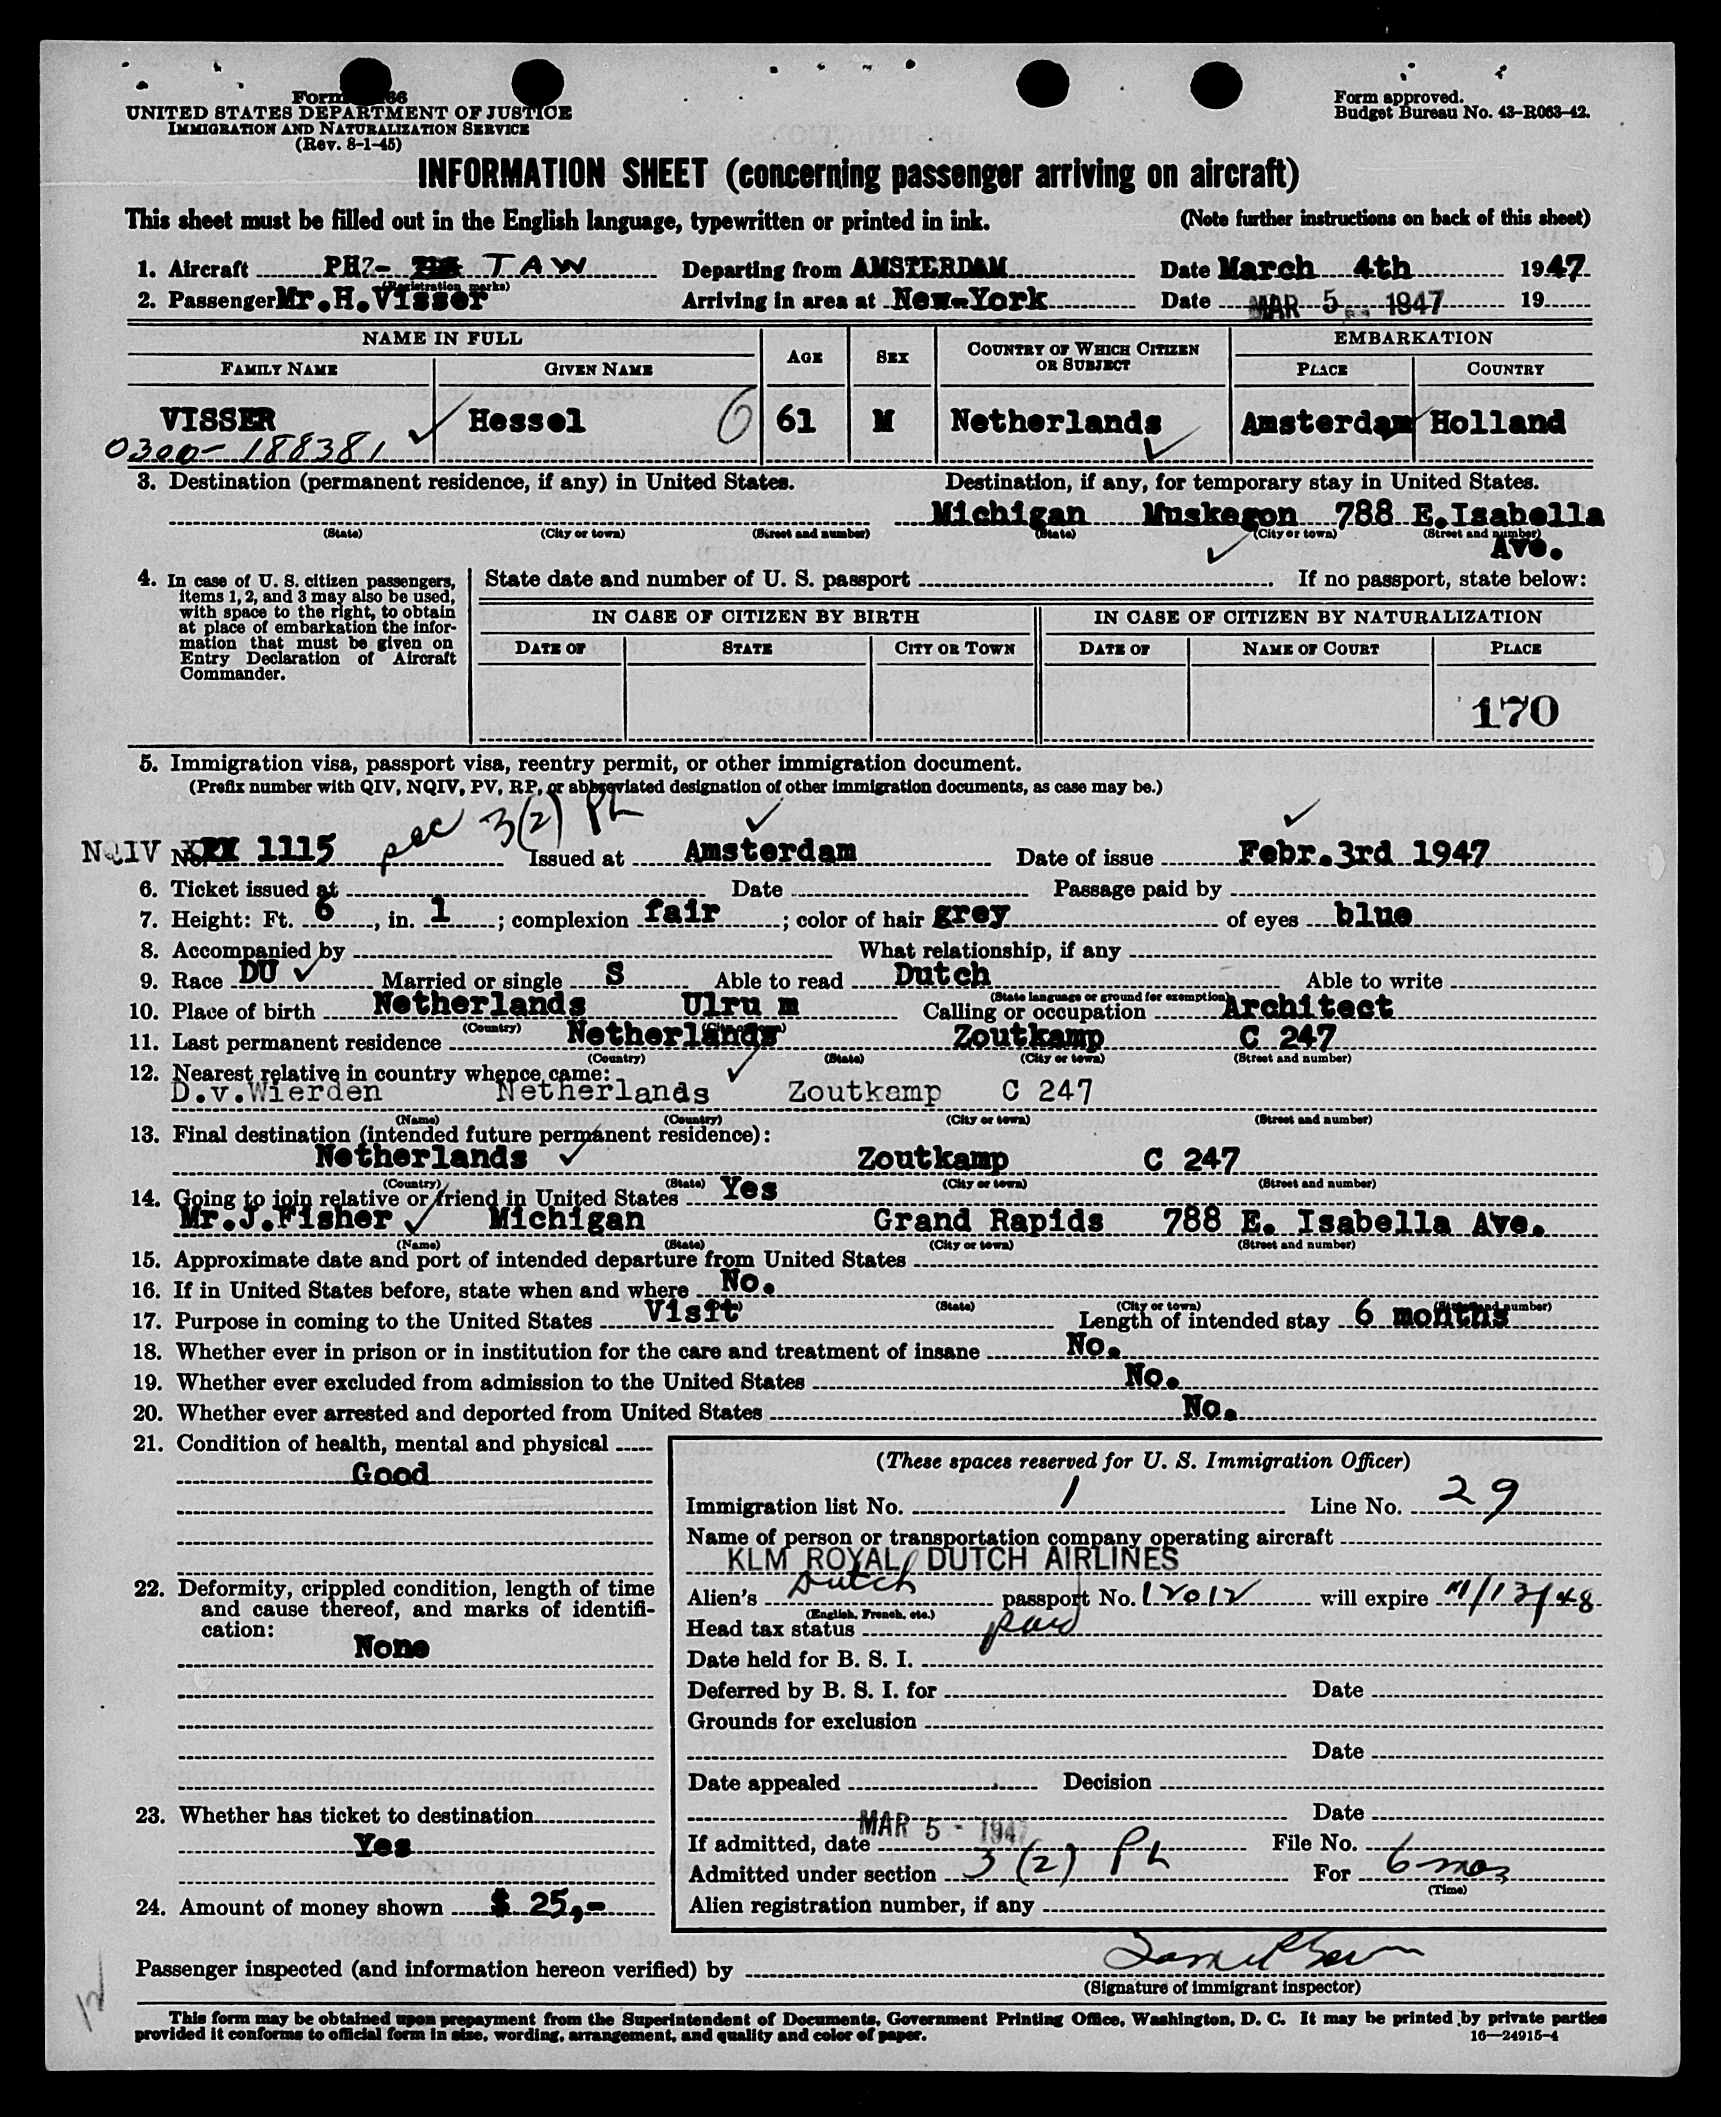 Form
UNITED STATES DEPARTMENT OF JUSTICE
IMMIGRATION AND NATURALIZATION SERVICE
(Rev. 8-1-45)
Form approved.
Budget Bureau No. 43-R063-42.
INFORMATION SHEET (concerning passenger arriving on aircraft)
This sheet must be filled out in the English language, typewritten or printed in ink. (Note further instructions on back of this sheet)
1. Aircraft PH- TAW Departing from AMSTERDAM Date March 4th 1947
(Registration marks)
2. Passenger Mr.H.Visser Arriving in area at New-York Date MAR 5 1947 19
NAME IN FULL AGE SEX COUNTRY OF WHICH CITIZEN OR SUBJECT EMBARKATION
FAMILY NAME GIVEN NAME PLACE COUNTRY
VISSER Hessel 6 61 M Netherlands Amsterdam Holland
0300-188381
3. Destination (permanent residence, if any) in United States. Destination, if any, for temporary stay in United States.
Michigan Muskegon 788 E.Isabella
(State) (City or town) (Street and number) (State) (City or town) (Street and number)
Ave.
4. In case of U. S. citizen passengers, items 1, 2, and 3 may also be used, with space to the right, to obtain at place of embarkation the information that must be given on Entry Declaration of Aircraft Commander.
State date and number of U. S. passport If no passport, state below:
IN CASE OF CITIZEN BY BIRTH IN CASE OF CITIZEN BY NATURALIZATION
DATE OF STATE CITY OR TOWN DATE OF NAME OF COURT PLACE
170
5. Immigration visa, passport visa, reentry permit, or other immigration document.
(Prefix number with QIV, NQIV, PV, RP, or abbreviated designation of other immigration documents, as case may be.)
3(2) Ph
NQIV No. 1115 Issued at Amsterdam Date of issue Febr.3rd 1947
6. Ticket issued at Date Passage paid by
7. Height: Ft. 6, in. 1; complexion fair; color of hair grey of eyes blue
8. Accompanied by What relationship, if any
9. Race DU Married or single S Able to read Dutch Able to write
(State language or ground for exemption)
10. Place of birth Netherlands Ulru m Calling or occupation Architect
(Country) (City or town)
11. Last permanent residence Netherlands Zoutkamp C 247
(Country) (State) (City or town) (Street and number)
12. Nearest relative in country whence came:
D.v.Wierden Netherlands Zoutkamp C 247
(Name) (Country) (City or town) (Street and number)
13. Final destination (intended future permanent residence):
Netherlands Zoutkamp C 247
(Country) (State) (City or town) (Street and number)
14. Going to join relative or friend in United States Yes
Mr.J.Fisher Michigan Grand Rapids 788 E. Isabella Ave.
(Name) (State) (City or town) (Street and number)
15. Approximate date and port of intended departure from United States
16. If in United States before, state when and where No.
(State) (City or town) (Street and number)
17. Purpose in coming to the United States Visit Length of intended stay 6 months
18. Whether ever in prison or in institution for the care and treatment of insane No.
19. Whether ever excluded from admission to the United States No.
20. Whether ever arrested and deported from United States No.
21. Condition of health, mental and physical
Good
22. Deformity, crippled condition, length of time
and cause thereof, and marks of identifi-
cation:
None
23. Whether has ticket to destination
Yes
24. Amount of money shown $ 25,-
(These spaces reserved for U. S. Immigration Officer)
Immigration list No. 1 Line No. 29
Name of person or transportation company operating aircraft
KLM ROYAL DUTCH AIRLINES
Alien's Dutch passport No. 12012 will expire /13/48
(English, French, etc.)
Head tax status paid
Date held for B. S. I.
Deferred by B. S. I. for Date
Grounds for exclusion
Date
Date appealed Decision
Date
If admitted, date MAR 5 - 1947 File No.
Admitted under section 3 (2) Ph For 6 mos
(Time)
Alien registration number, if any
Passenger inspected (and information hereon verified) by
(Signature of immigrant inspector)
12
This form may be obtained upon prepayment from the Superintendent of Documents, Government Printing Office, Washington, D. C. It may be printed by private parties
provided it conforms to official form in size, wording, arrangement, and quality and color of paper.
16—24915-4